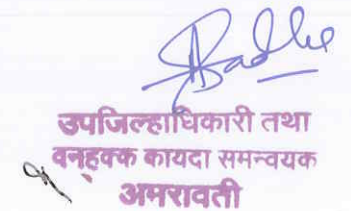 उपजिल्हाधिकारी तथा
वनहक्क कायदा समन्वयक
अमरावती